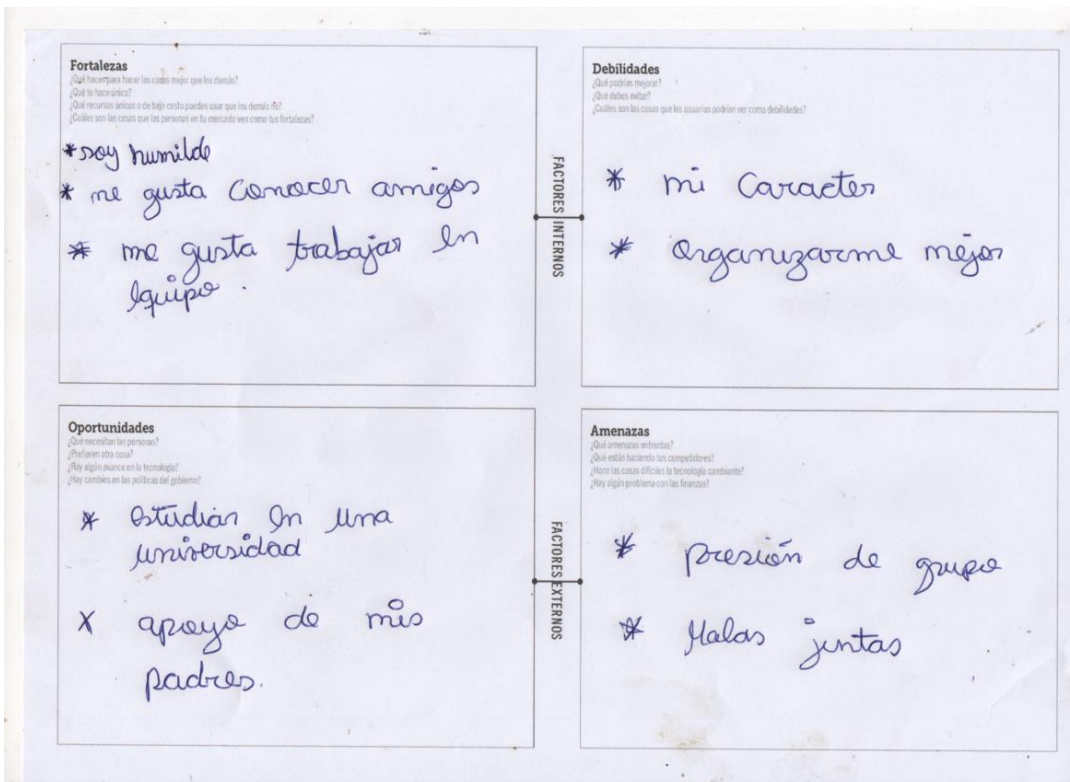 Fortalezas
¿Qué haces para hacer las cosas mejor que los demás?
¿Qué te hace único?
¿Qué recursos únicos o de bajo costo puedes usar que los demás no?
¿Cuáles son las cosas que las personas en tu mercado ven como tus fortalezas?
* soy humilde
* me gusta conocer amigos
* me gusta trabajar en
equipo.
FACTORES INTERNOS
Debilidades
¿Qué podrías mejorar?
¿Qué debes evitar?
¿Cuáles son las cosas que los usuarios podrían ver como debilidades?
* mi caracter
* organizarme mejor
Oportunidades
¿Qué necesitan las personas?
¿Prefieren otra cosa?
¿Hay algún avance en la tecnología?
¿Hay cambios en las políticas del gobierno?
* estudiar en una
universidad
X apoyo de mis
padres.
FACTORES EXTERNOS
Amenazas
¿Qué amenazas enfrentas?
¿Qué están haciendo tus competidores?
¿Hace las cosas difíciles la tecnología cambiante?
¿Hay algún problema con las finanzas?
* presión de grupo
* Malas juntas